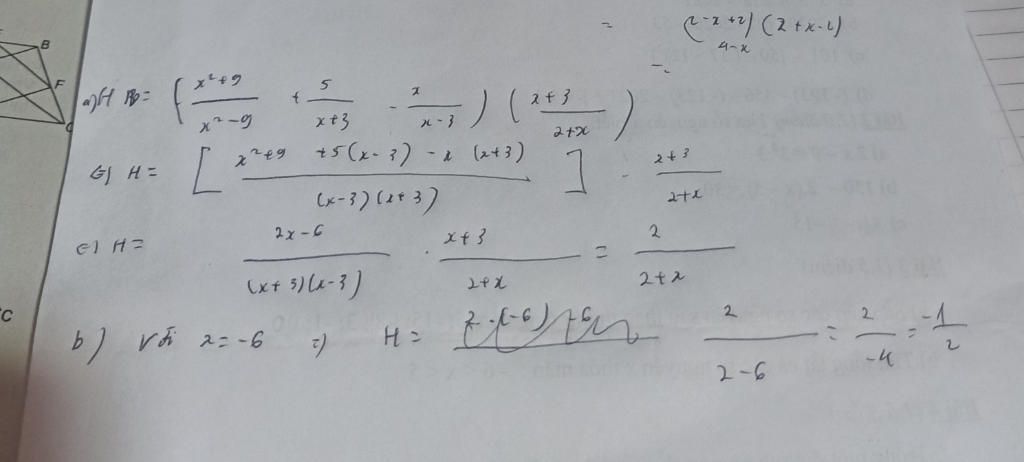 = (2-x+2)(2+x-2)
4-x
B
F
C
a) H = ( x²+9 / x²-9 + 5 / x+3 - x / x-3 ) ( x+3 / 2+x )
⇔ H = [ x²+9 +5(x-3) - x (x+3) / (x-3)(x+3) ] · x+3 / 2+x
⇔ H = 2x-6 / (x+3)(x-3) · x+3 / 2+x = 2 / 2+x
b) Với x=-6 ⇒ H = 2 / 2-6 = 2 / -4 = -1 / 2
C